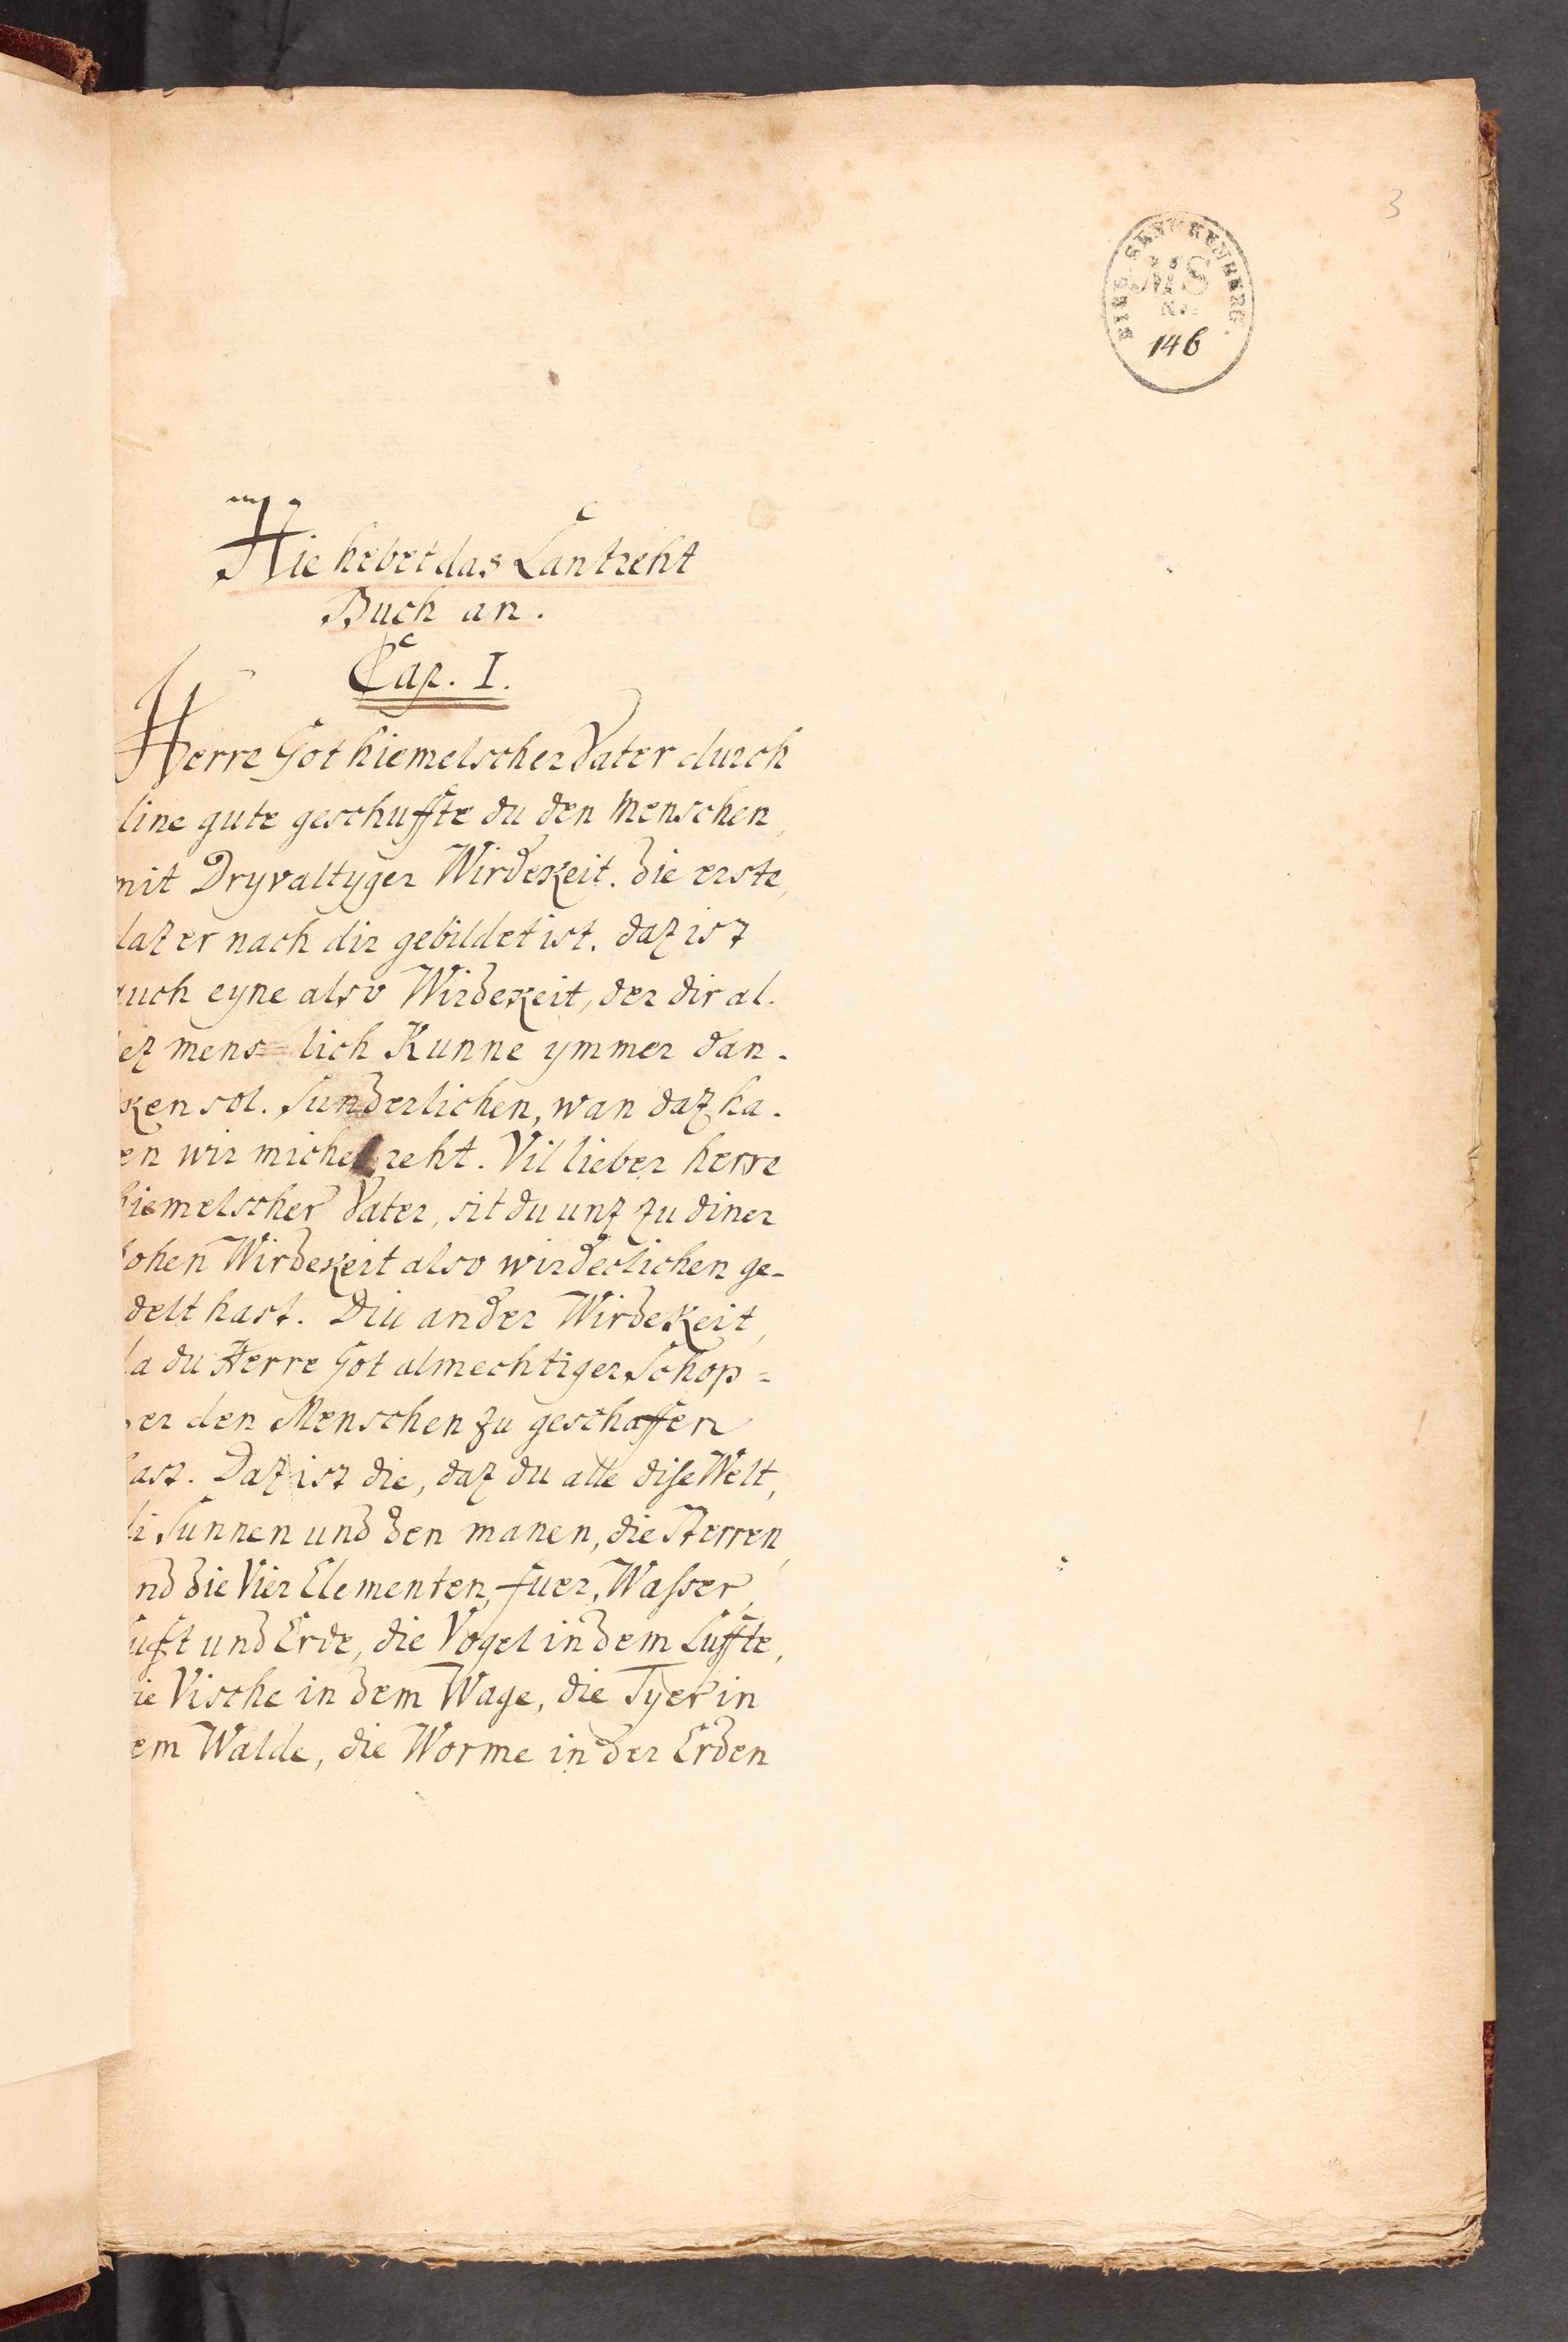 3
BIBL. SENCKENBERG.
MS
No.
146
Hie hebet das Lantreht
Buch an.
Cap. I.
Herre Got hiemelscher Vater durch
dine gute geschuffte du den Menschen,
mit Dryvaltyger Wirdekeit. die erste,
daz er nach dir gebildet ist. daz ist
auch eyne also Wirdekeit, der dir al-
lez mens=lich Kunne ymmer dan-
ken sol. Sunderlichen, wan daz ha-
en wir michel reht. Vil lieber herre
hiemelscher Vater, sit du unz zu diner
hohen Wirdekeit also wirdeclichen ge-
delt hast. Diu ander Wirdekeit,
da du Herre Got almechtiger Schop=
er den Menschen zu geschaffen
hast. Daz ist die, daz du alle dise Welt,
di Sunnen und den manen, die Sterren,
nd die Vier Elementen, fuer, Wasser,
Luft und Erde, die Vogel in dem Luffte,
ie Vische in dem Wage, die Tyer in
em Walde, die Worme in der Erden